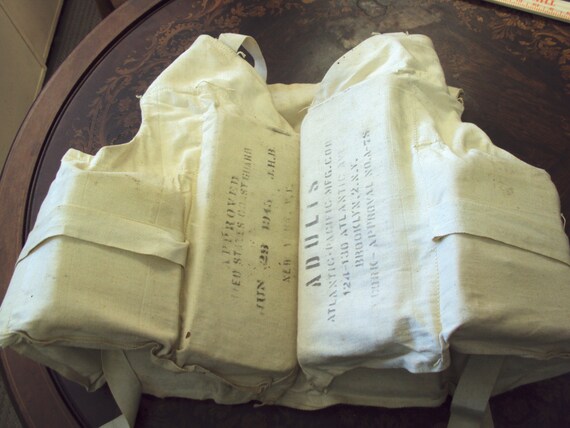 APPROVED
STATES COAST GUARD
JUN 28 1945 J.H.B
NEW YORK, N.Y.
ADULTS
ATLANTIC-PACIFIC MFG.COR
124-130 ATLANTIC AVE
BROOKLYN, 2.N.Y.
CORK-APPROVAL NO.A-78